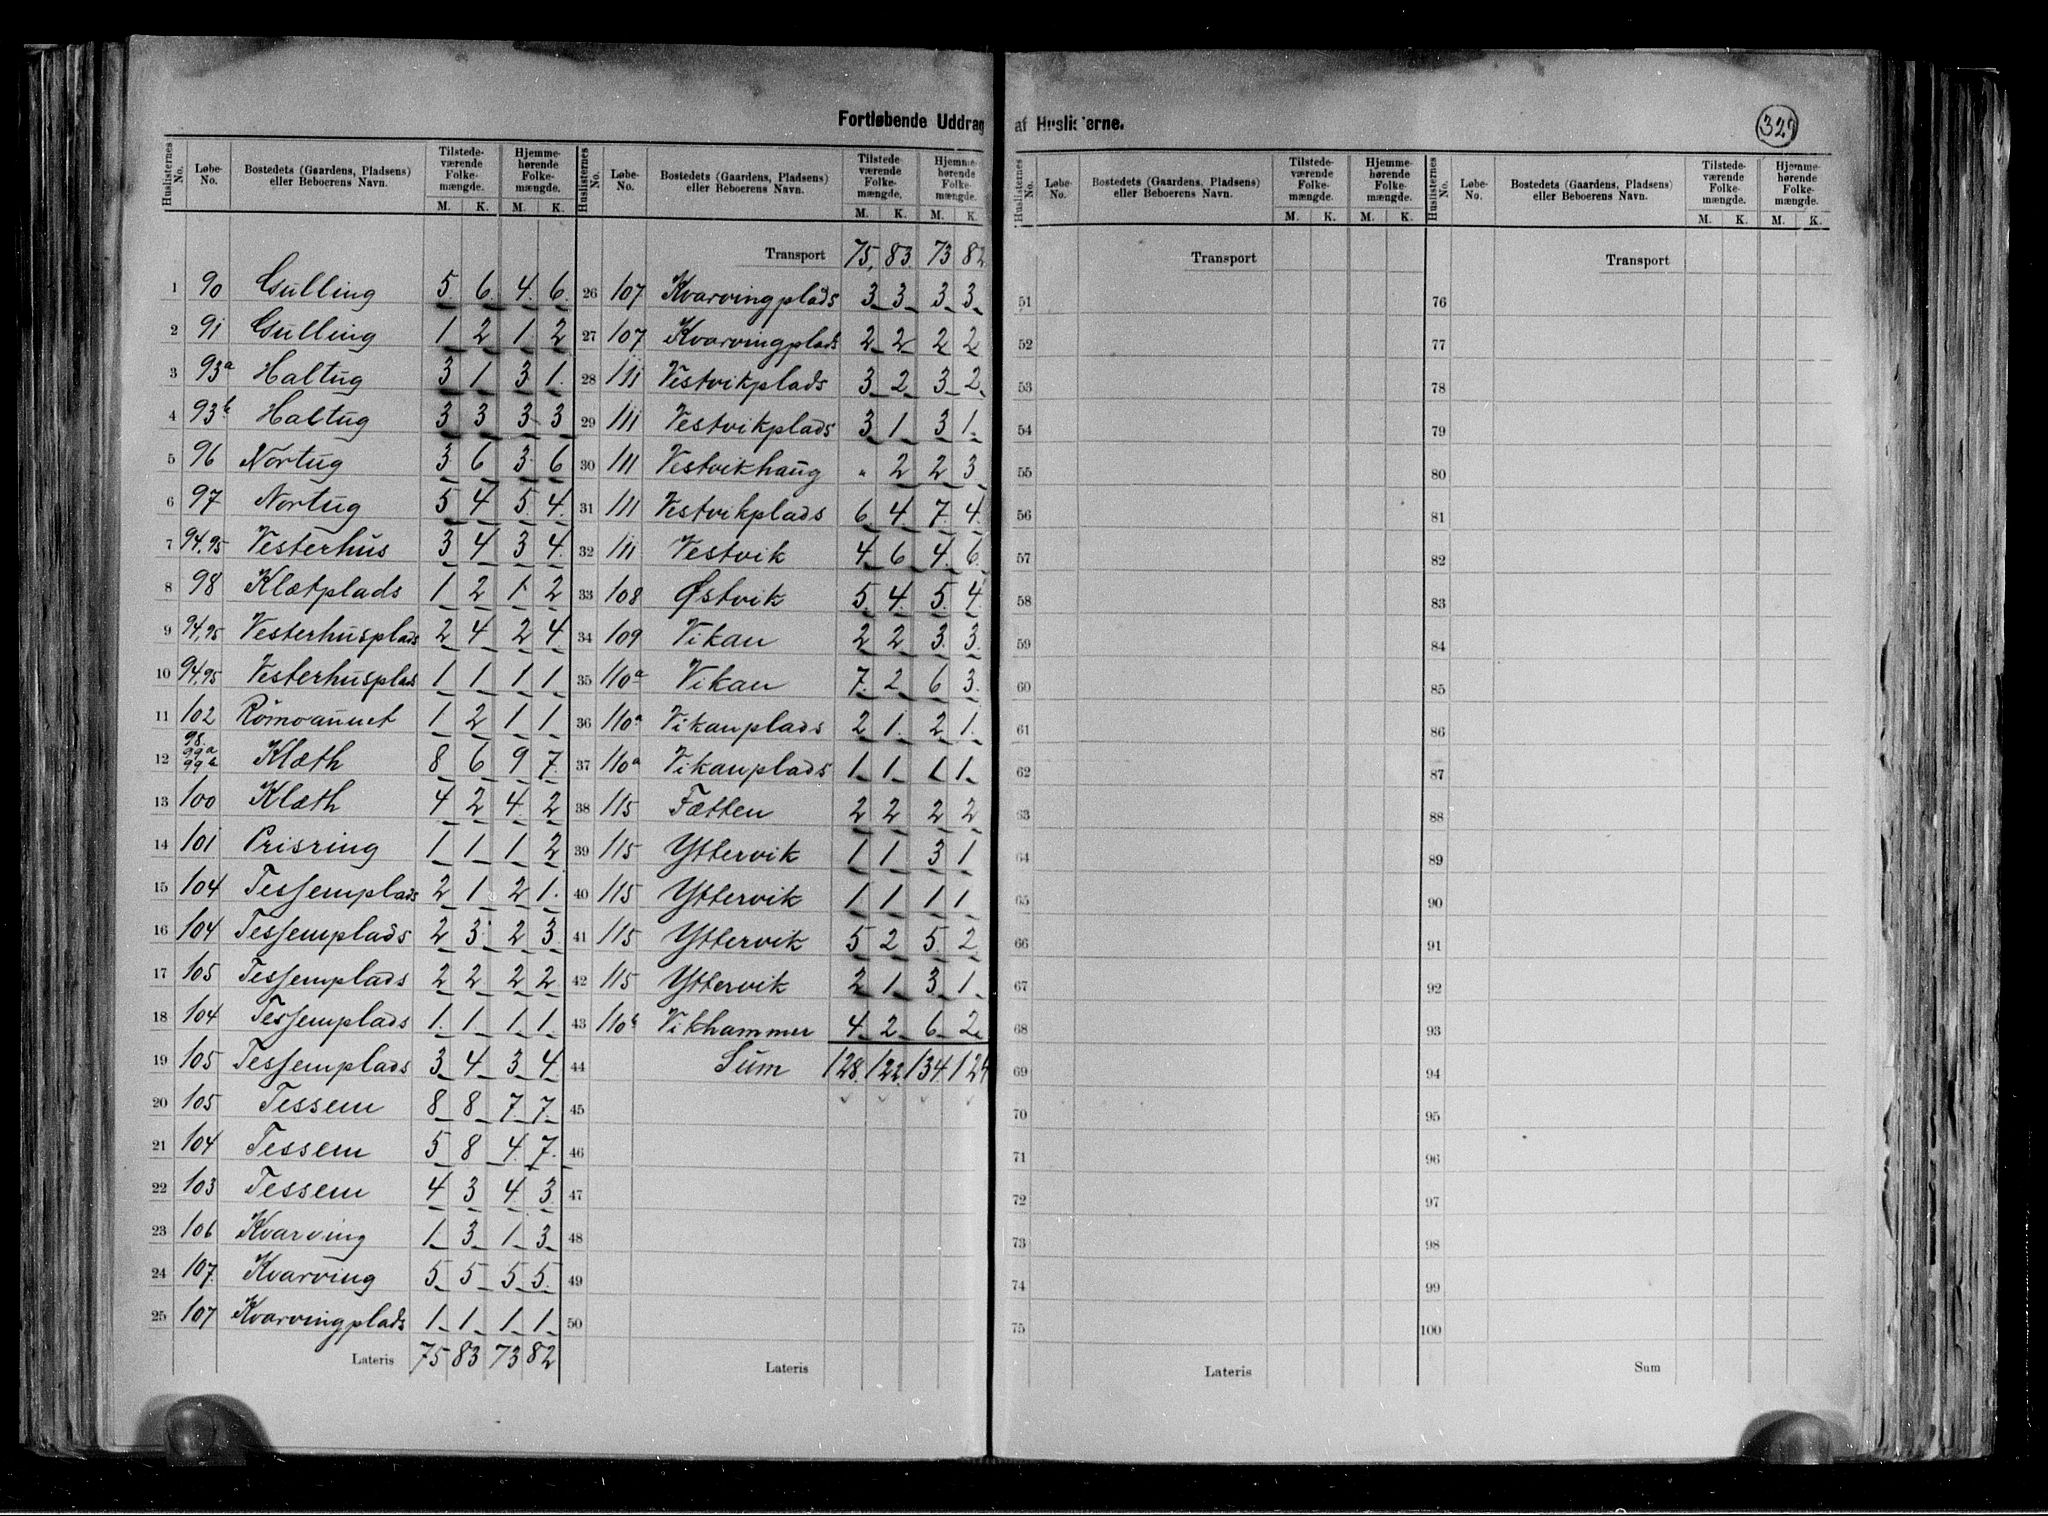 Fortløbende Uddrag af Huslisterne.
329
Huslisternes No. | Løbe-No. | Bostedets (Gaardens, Pladsens) eller Beboerens Navn. | Tilstedeværende Folkemængde. M. K. | Hjemmehørende Folkemængde. M. K.
1 90 Gulling 5 6 4 6
2 91 Gulling 1 2 1 2
3 93a Haltug 3 1 3 1
4 93b Haltug 3 3 3 3
5 96 Nortug 3 6 3 6
6 97 Nortug 5 4 5 4
7 94,95 Vesterhus 3 4 3 4
8 98 Klætplads 1 2 1 2
9 94,95 Vesterhusplads 2 4 2 4
10 94,95 Vesterhusplads 1 1 1 1
11 102 Rømoaunet 1 2 1 1
12 98. 99a 99b Klæth 8 6 9 7
13 100 Klæth 4 2 4 2
14 101 Prisring 1 1 1 2
15 104 Tessemplads 2 1 2 1
16 104 Tessemplads 2 3 2 3
17 105 Tessemplads 2 2 2 2
18 104 Tessemplads 1 1 1 1
19 105 Tessemplads 3 4 3 4
20 105 Tessem 8 8 7 7
21 104 Tessem 5 8 4 7
22 103 Tessem 4 3 4 3
23 106 Kvarving 1 3 1 3
24 107 Kvarving 5 5 5 5
25 107 Kvarvingplads 1 1 1 1
Lateris 75 83 73 82
Huslisternes No. | Løbe-No. | Bostedets (Gaardens, Pladsens) eller Beboerens Navn. | Tilstedeværende Folkemængde. M. K. | Hjemmehørende Folkemængde. M. K.
Transport 75 83 73 82
26 107 Kvarvingplads 3 3 3 3
27 107 Kvarvingplads 2 2 2 2
28 111 Vestvikplads 3 2 3 2
29 111 Vestvikplads 3 1 3 1
30 111 Vestvikhaug " 2 2 3
31 111 Vestvikplads 6 4 7 4
32 111 Vestvik 4 6 4 6
33 108 Østvik 5 4 5 4
34 109 Vikan 2 2 3 3
35 110a Vikan 7 2 6 3
36 110a Vikanplads 2 1 2 1
37 110a Vikanplads 1 1 1 1
38 115 Fætten 2 2 2 2
39 115 Yttervik 1 1 3 1
40 115 Yttervik 1 1 1 1
41 115 Yttervik 5 2 5 2
42 115 Yttervik 2 1 3 1
43 110b Vikhammer 4 2 6 2
44 Sum 128 122 134 124
45
46
47
48
49
50
Lateris
Huslisternes No. | Løbe-No. | Bostedets (Gaardens, Pladsens) eller Beboerens Navn. | Tilstedeværende Folkemængde. M. K. | Hjemmehørende Folkemængde. M. K.
Transport
51
52
53
54
55
56
57
58
59
60
61
62
63
64
65
66
67
68
69
70
71
72
73
74
75
Lateris
Huslisternes No. | Løbe-No. | Bostedets (Gaardens, Pladsens) eller Beboerens Navn. | Tilstedeværende Folkemængde. M. K. | Hjemmehørende Folkemængde. M. K.
Transport
76
77
78
79
80
81
82
83
84
85
86
87
88
89
90
91
92
93
94
95
96
97
98
99
100
Sum